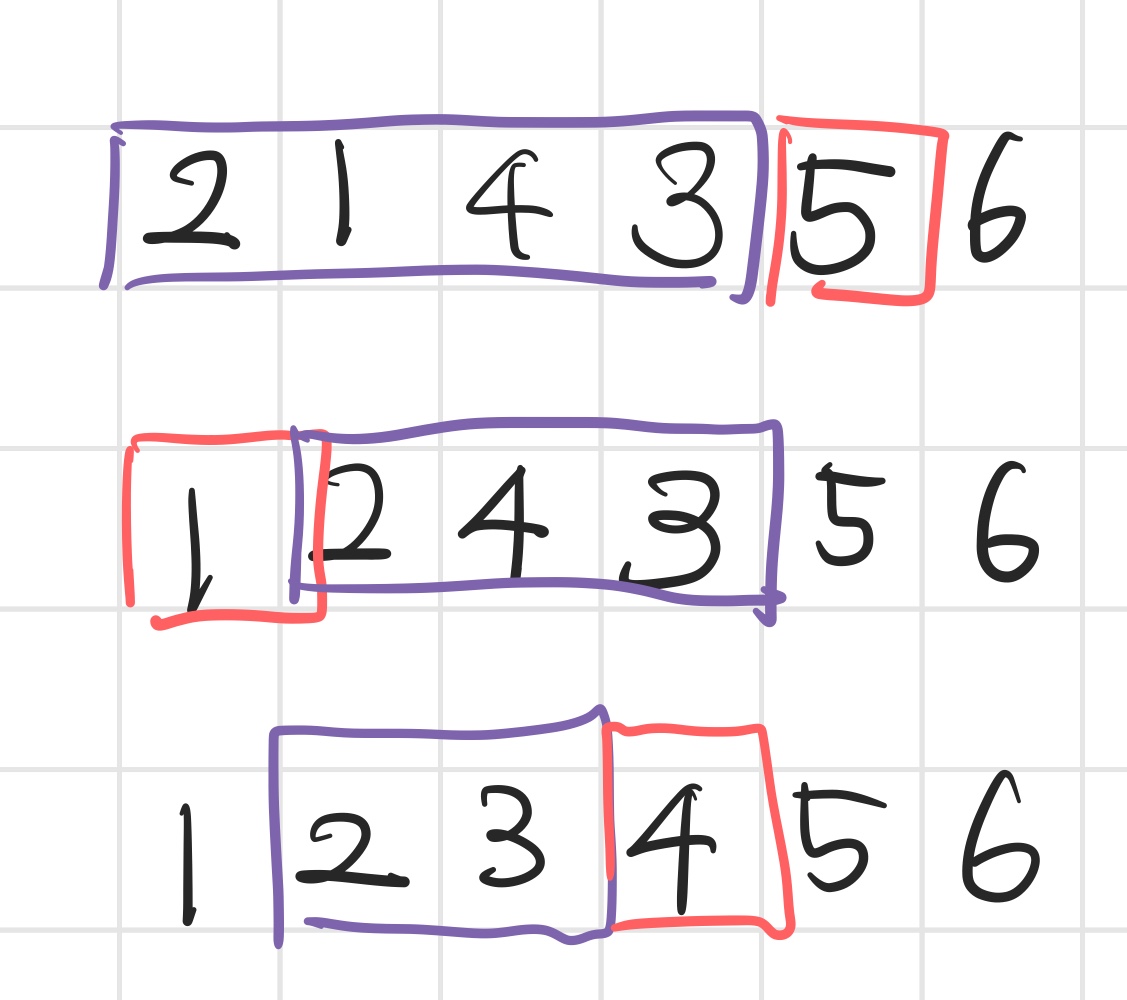 2 1 4 3 5 6
1 2 4 3 5 6
1 2 3 4 5 6